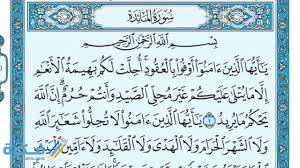 سُورَةُ المَائدَة
بِسْمِ اللَّهِ الرَّحْمَٰنِ الرَّحِيمِ
يَٰٓأَيُّهَا الَّذِينَ ءَامَنُوٓا۟ أَوْفُوا۟ بِالْعُقُودِ أُحِلَّتْ لَكُم بَهِيمَةُ الْأَنْعَٰمِ
إِلَّا مَا يُتْلَىٰ عَلَيْكُمْ غَيْرَ مُحِلِّى الصَّيْدِ وَأَنتُمْ حُرُمٌ إِنَّ اللَّهَ
يَحْكُمُ مَا يُرِيدُ ١ يَٰٓأَيُّهَا الَّذِينَ ءَامَنُوا۟ لَا تُحِلُّوا۟ شَعَٰٓئِرَ اللَّهِ
وَلَا الشَّهْرَ الْحَرَامَ وَلَا الْهَدْىَ وَلَا الْقَلَٰٓئِدَ وَلَآ ءَآمِّينَ